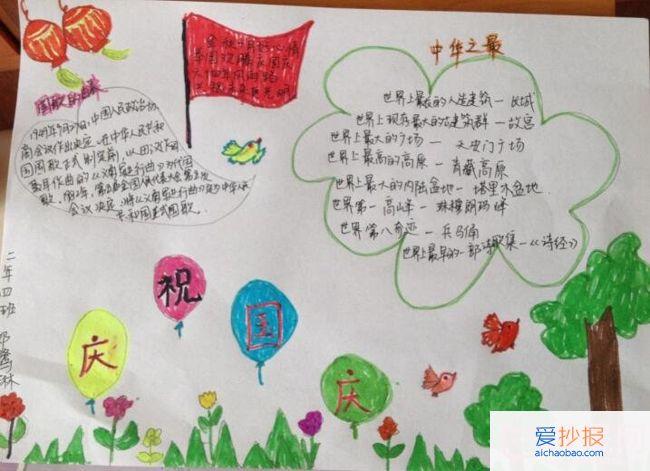 中华之最
世界上最长的人造建筑—长城
世界上现存最大的古建筑群—故宫
世界上最大的广场—天安门广场
世界上最高的高原—青藏高原
世界上最大的内陆盆地—塔里木盆地
世界第一高峰—珠穆朗玛峰
世界第八奇迹—兵马俑
世界上最早的一部诗歌集—《诗经》
国歌的由来
1949年9月27日,中国人民政治协
商会议作出决定,在中华人民共和
国国歌正式制定前,以田汉作词
聂耳作曲的《义勇军进行曲》为代国
歌。
会议决定,将《义勇军进行曲》定为中华人民
共和国正式国歌。
庆
祝
国
庆
二年四班
爱抄报
aichaobao.com